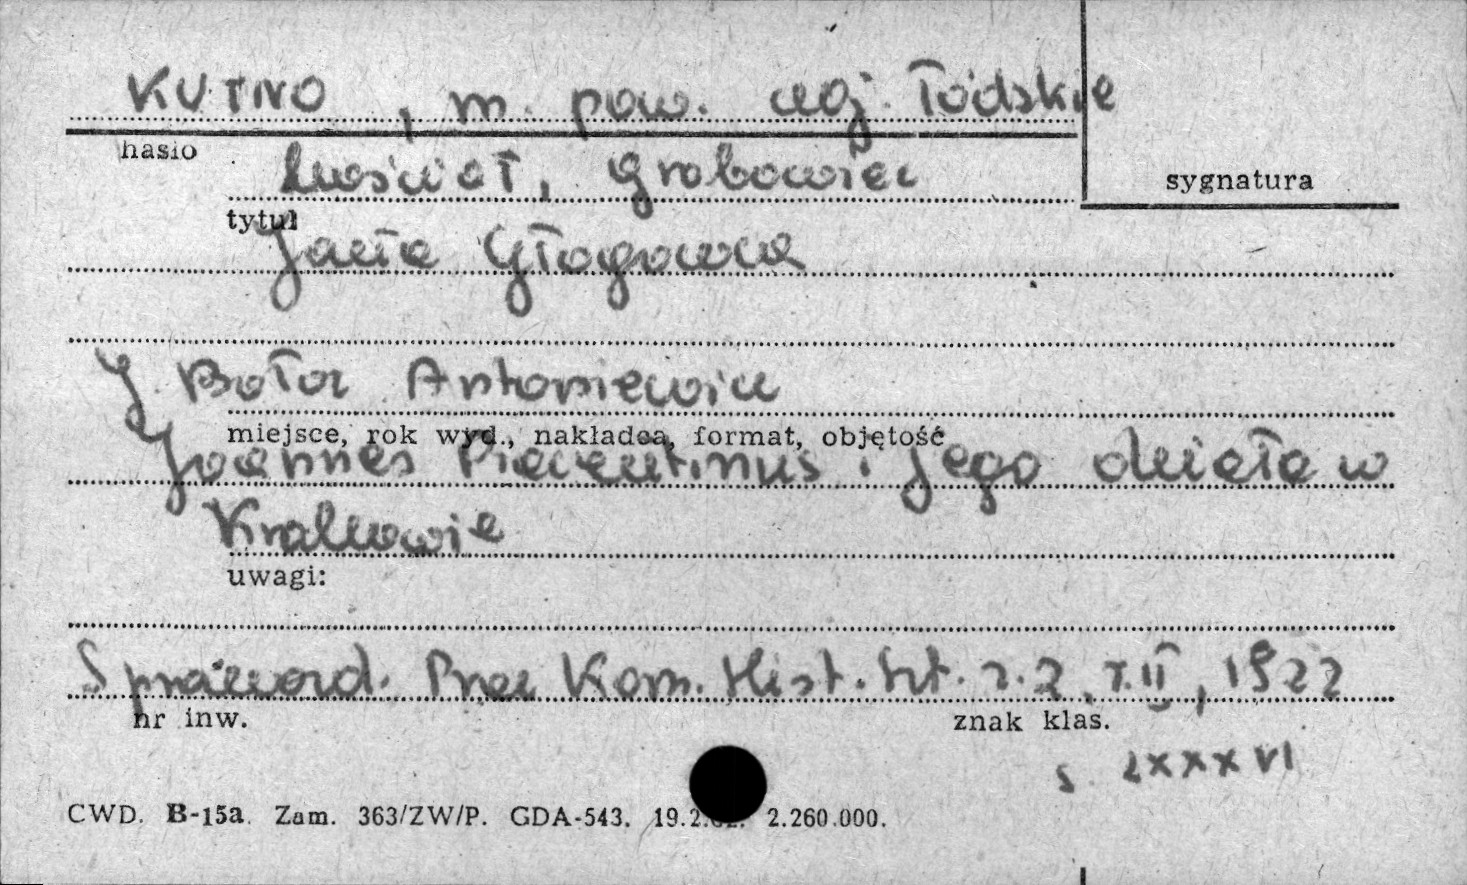 KUTNO, m. pow. woj. łódzkie
hasło
kościół, Grobowiec
sygnatura
tytuł
Jacka Głogowca
J Bołoz Antoniewicz
miejsce, rok wyd., nakładca, format, objętość
Joannes Placentinus i jego dzieła w
Krakowie
uwagi:
Sprawozd. Prac Kom. Hist. Szt. z. 2, T. II, 1922
nr inw.
znak klas.
s. LXXXVI
CWD. B-15a. Zam. 363/ZW/P. GDA-543. 19.2. 2.260.000.